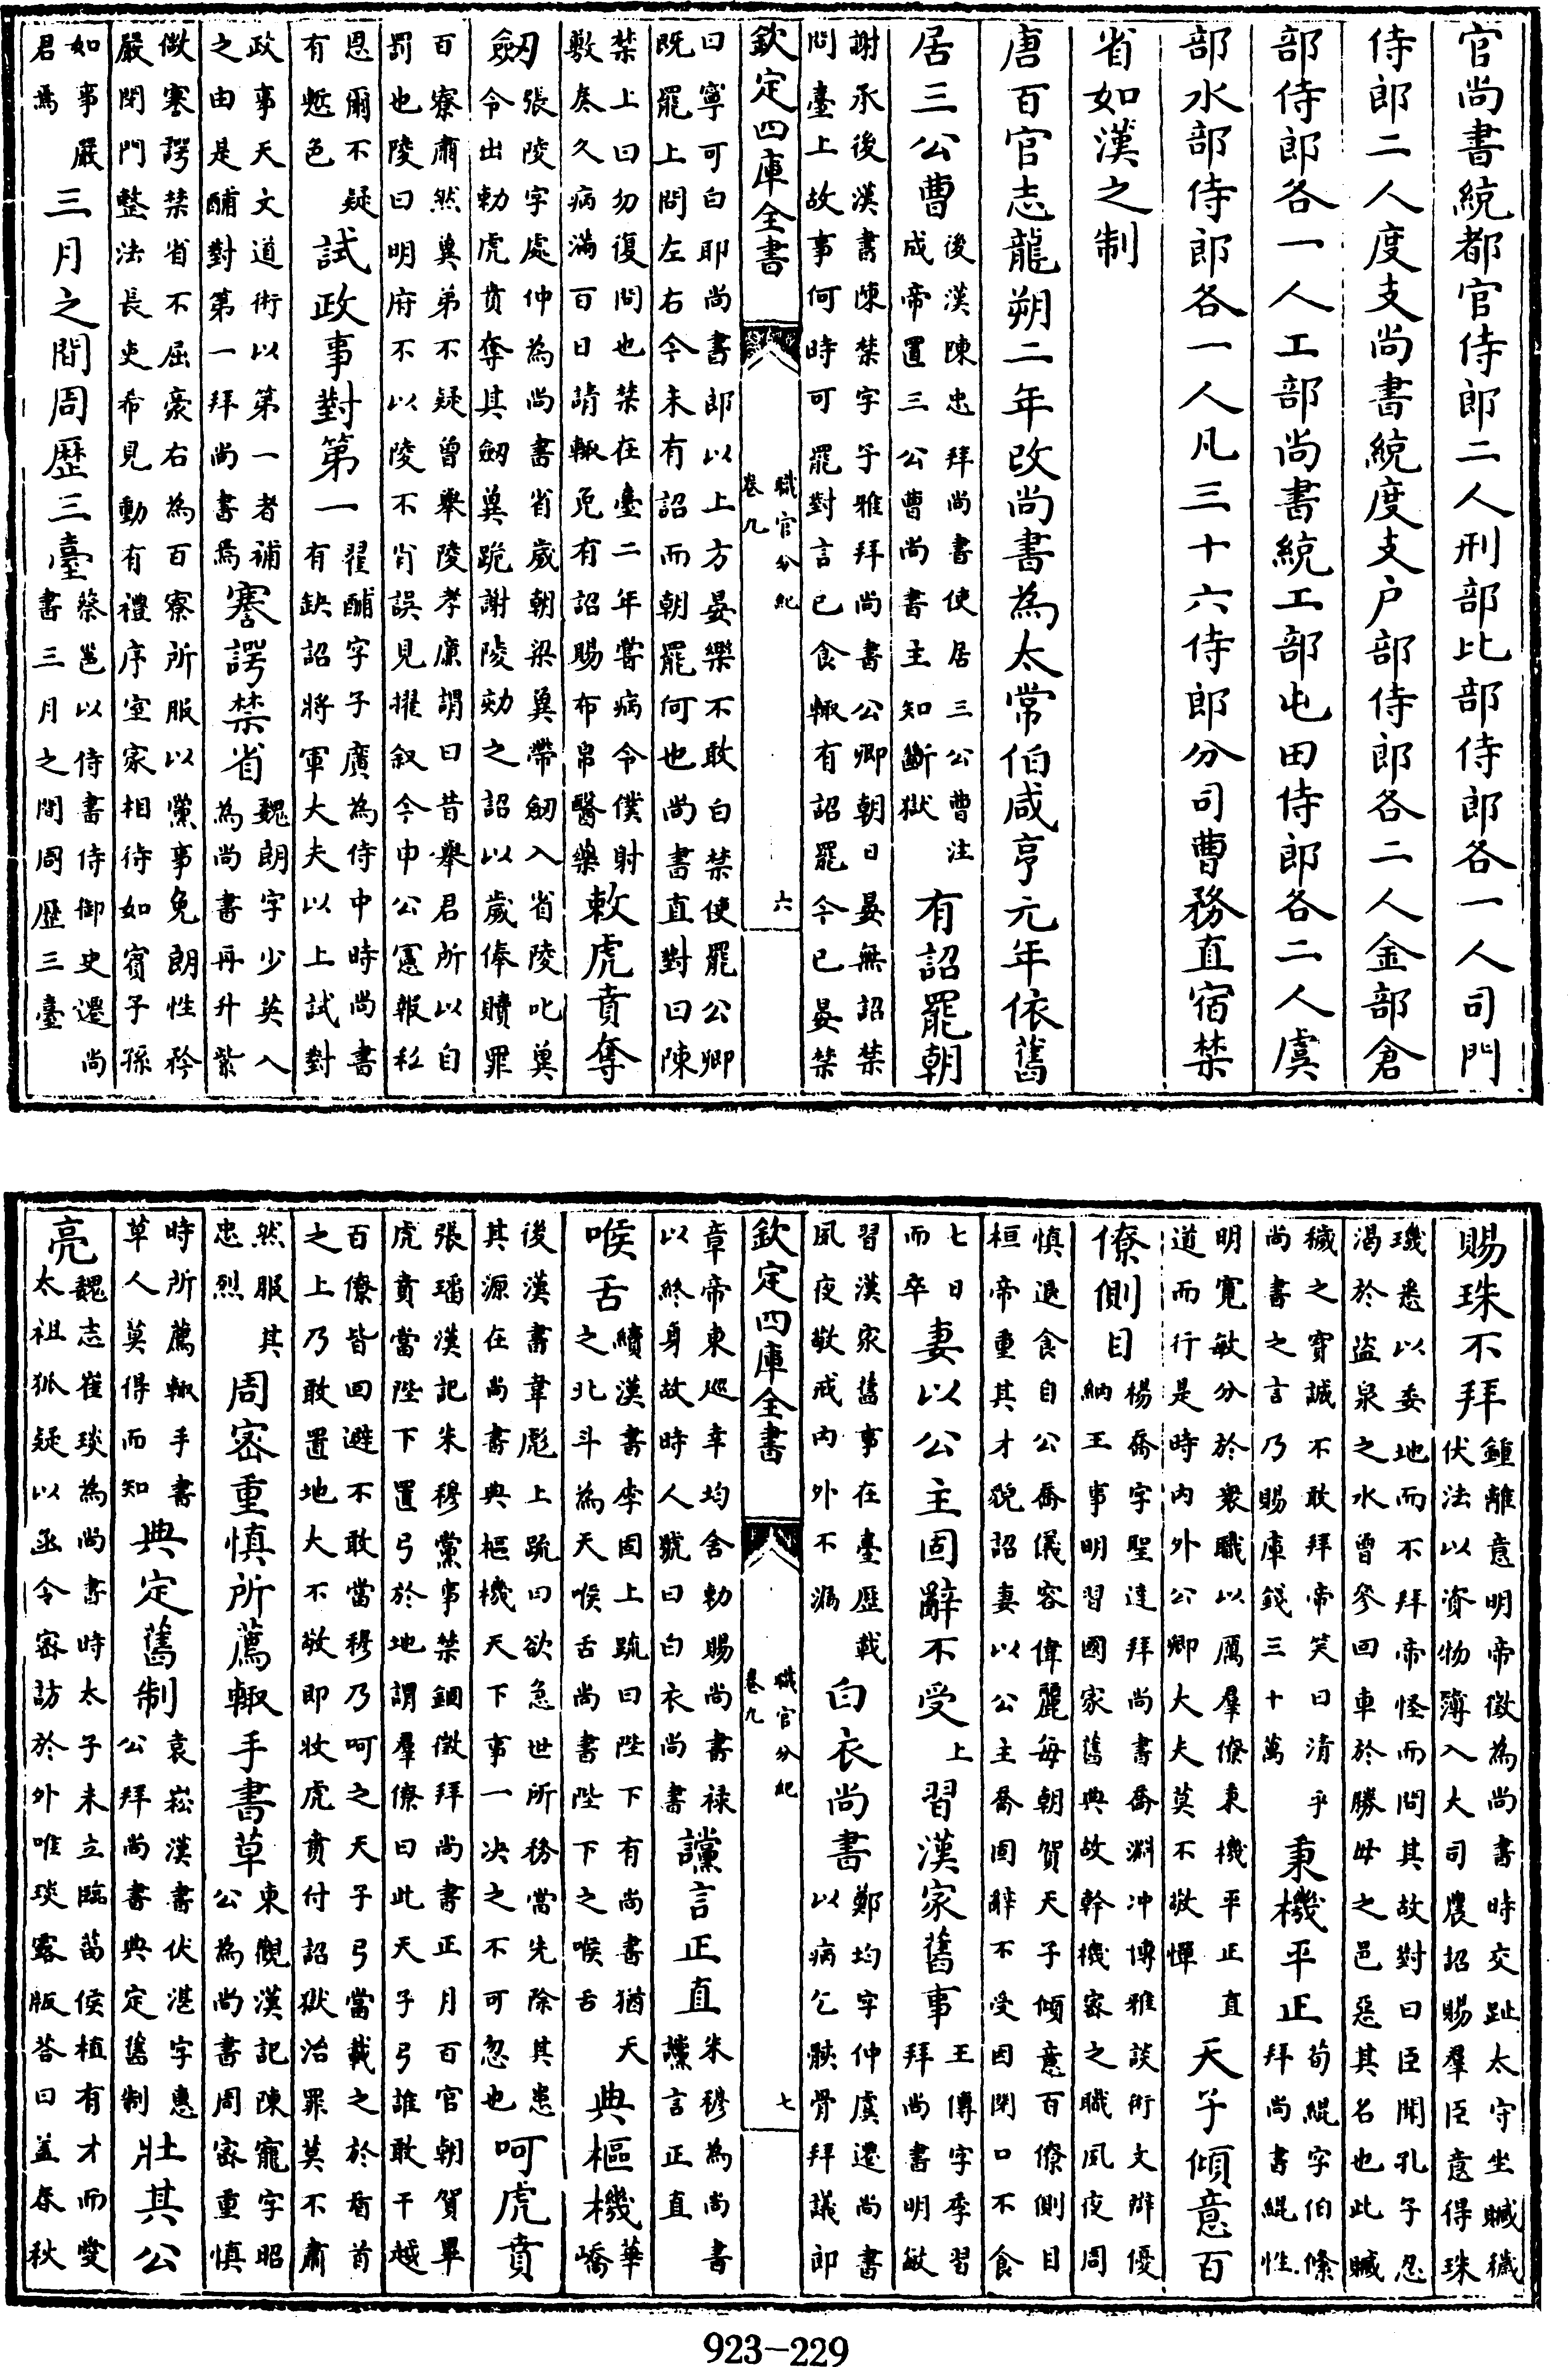 官尚書統都官侍郎二人刑部比部侍郎各一人司門
侍郎二人度支尚書統度支户部侍郎各二人金部倉
部侍郎各一人工部尚書統工部屯田侍郎各二人虞
部水部侍郎各一人凡三十六侍郎分司曹務直宿禁
省如漢之制
唐百官志龍朔二年改尚書為太常伯咸亨元年依舊
居三公曹後漢陳忠拜尚書使居三公曹注成帝置三公曹尚書主知斷獄有詔罷朝
謝承後漢書陳禁字子雅拜尚書公卿朝日晏無詔禁
問臺上故事何時可罷對言已食輙有詔罷今已晏禁
欽定四庫全書
職官分紀
卷九
六
曰寧可白耶尚書郎以上方晏樂不敢白禁使罷公卿
既罷上問左右今未有詔而朝罷何也尚書直對曰陳
禁上曰勿復問也禁在臺二年嘗病令僕射
數奏久病滿百日請輙免有詔賜布帛醫藥敕虎賁奪
劒張陵字處仲為尚書省歲朝梁冀帶劒入省陵叱冀令出勅虎賁奪其劒冀跪謝陵劾之詔以歲俸贖罪
百寮肅然冀弟不疑曾舉陵孝廉謂曰昔舉君所以自
罰也陵曰明府不以陵不肖誤見擢叙今申公憲報私
恩爾不疑有慙色試政事對第一翟酺字子廣為侍中時尚書有缺詔將軍大夫以上試對
政事天文道術以第一者補
之由是酺對第一拜尚書焉謇諤禁省魏朗字少英入為尚書再升紫
微謇諤禁省不屈豪右為百寮所服以黨事免朗性矜
嚴閉門整法長吏希見動有禮序室家相待如賓子孫
如事嚴君焉三月之間周歷三臺蔡邕以侍書侍御史遷尚書三月之間周歷三臺
賜珠不拜鍾離意明帝徵為尚書時交趾太守坐贓穢伏法以資物簿入大司農詔賜羣臣意得珠
璣悉以委地而不拜帝怪而問其故對曰臣聞孔子忍
渴於盜泉之水曾參回車於勝母之邑惡其名也此贓
穢之寶誠不敢拜帝笑曰清乎
尚書之言乃賜庫錢三十萬秉機平正荀緄字伯條拜尚書緄性
明寛敏分於衆職以厲羣僚秉機平正直
道而行是時内外公卿大夫莫不敬憚天子傾意百
僚側目楊喬字聖達拜尚書喬淵冲博雅談術文辯優納王事明習國家舊典故幹機密之職夙夜周
慎退食自公喬儀容偉麗每朝賀天子傾意百僚側目
桓帝重其才貌詔妻以公主喬固辭不受因閉口不食
七日而卒妻以公主固辭不受上習漢家舊事王傳字季習拜尚書明敏
習漢家舊事在臺歷載
夙夜敬戒内外不漏白衣尚書鄭均字仲虞遷尚書以病乞骸骨拜議郎
欽定四庫全書
職官分紀
卷九
七
章帝東巡幸均舍勅賜尚書禄
以終身故時人號曰白衣尚書讜言正直朱穆為尚書讜言正直
喉舌續漢書李固上疏曰陛下有尚書猶天之北斗為天喉舌尚書陛下之喉舌典樞機華嶠
後漢書韋彪上疏曰欲急世所務當先除其患
其源在尚書典樞機天下事一决之不可忽也呵虎賁
張璠漢記朱穆黨事禁錮徵拜尚書正月百官朝賀畢
虎賁當陛下置弓於地謂羣僚曰此天子弓誰敢干越
百僚皆回避不敢當穆乃呵之天子弓當載之於首
之上乃敢置地大不敬即收虎賁付詔獄治罪莫不肅
然服其忠烈周宻重慎所薦輙手書草東觀漢記陳寵字昭公為尚書周宻重慎
時所薦輙手書
草人莫得而知典定舊制袁崧漢書伏湛字惠公拜尚書典定舊制壯其公
亮魏志崔琰為尚書時太子未立臨菑侯植有才而愛太祖狐疑以函令宻訪於外唯琰露版荅曰蓋春秋
923-229